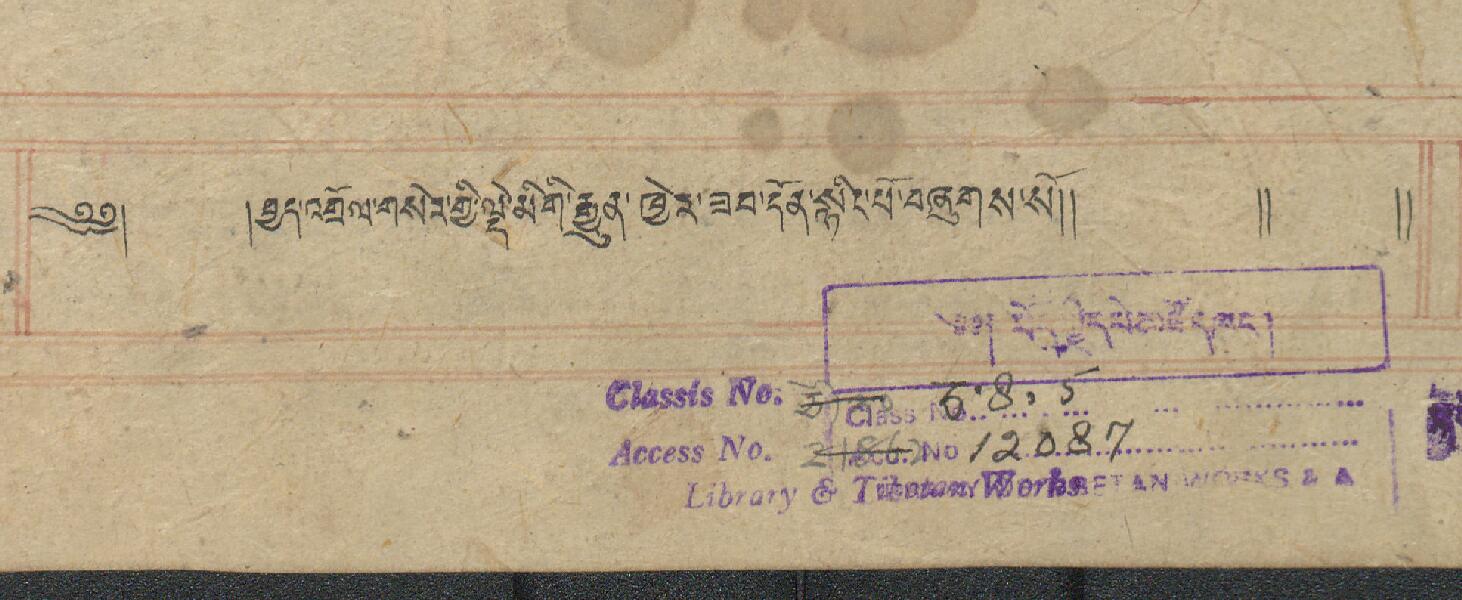 ༄༅། །བྱང་འགྲོལ་གསེར་གྱི་ལྡེ་མིག་གི་རྒྱུན་ཁྱེར་ཟབ་དོན་སྙིང་པོ་བཞུགས་སོ།། །། །།
Classis No. Class No. 6.8.5
Access No. No 12087
Library & Tibetan Works TIBETAN WORKS & A